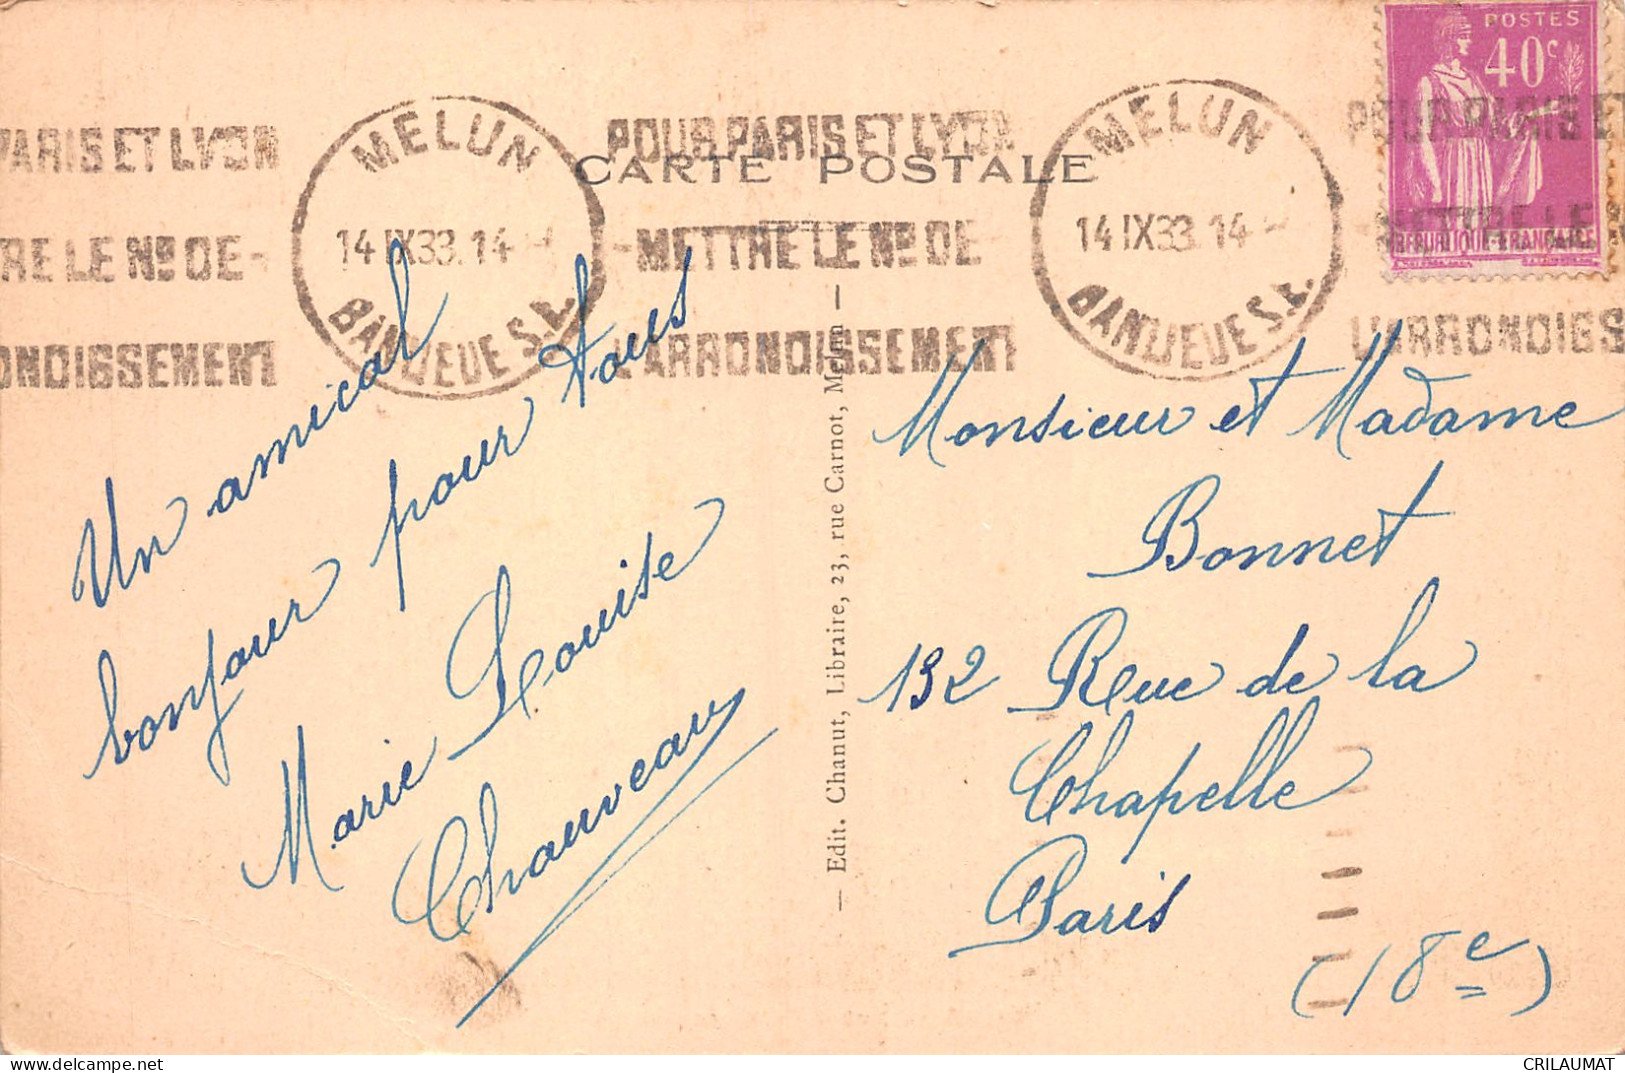 POSTES
40c
REPUBLIQUE FRANÇAISE
PARIS ET LYON
TRE LE No DE
ONDISSEMENT
MELUN
14 IX 33. 14
BANLIEUE S.E.
POUR PARIS ET LYON
METTRE LE No DE
L'ARRONDISSEMENT
MELUN
14 IX 33. 14
BANLIEUE S.E.
POUR PARIS E
METTRE LE
L'ARRONDISS
CARTE POSTALE
Un amical
bonjour pour tous
Marie Louise
Chauveau
— Edit. Chanut, Libraire, 23, rue Carnot, Melun —
Monsieur et Madame
Bonnet
132 Rue de la
Chapelle
Paris
(18e)
delcampe.net
CRILAUMAT